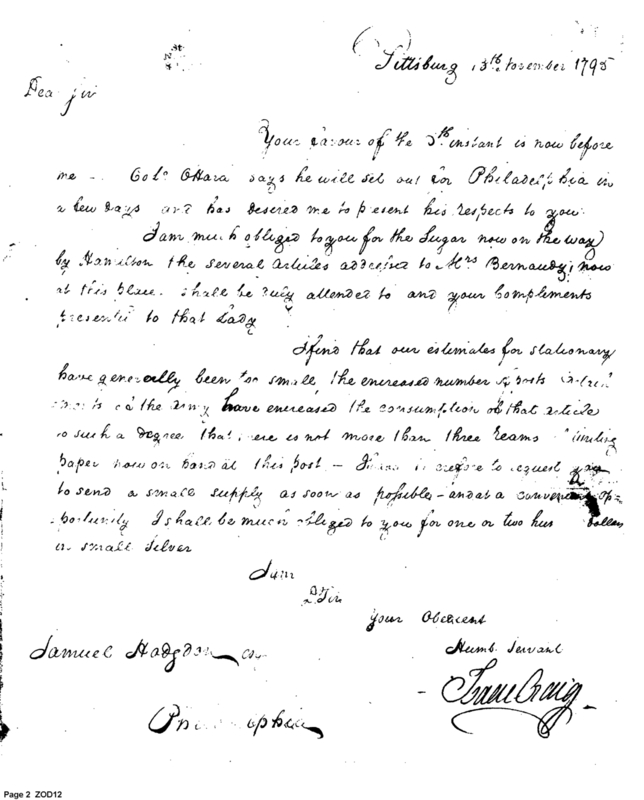 Pittsburg 13th November 1795
Dea Sir
Your favour of the 5th instant is now before
me Colo OHara says he will set out for Philadelphia in
a few days and has desired me to present his respects to you
I am much obliged to you for the Sugar now on the way
by Hamilton the several articles addressed to Mrs Bernaudy now
at this place. shall be duly attended to and your Complements
presented to that Lady
I find that our estimates for stationary
have generally been too small, the encreased number of posts
of the Army have encreased the consumption of that article
to such a degree that there is not more than three reams writing
paper now on hand at this post – I have therefore to request you
to send a small supply as soon as possible – and at a convenient op-
portunity I shall be much obliged to you for one or two hun dollars
in small silver
I am
D Sir
Your Obedient
Humb. Servant
Samuel Hodgdon
Isaac Craig
Philadelphia
Page 2 ZOD12